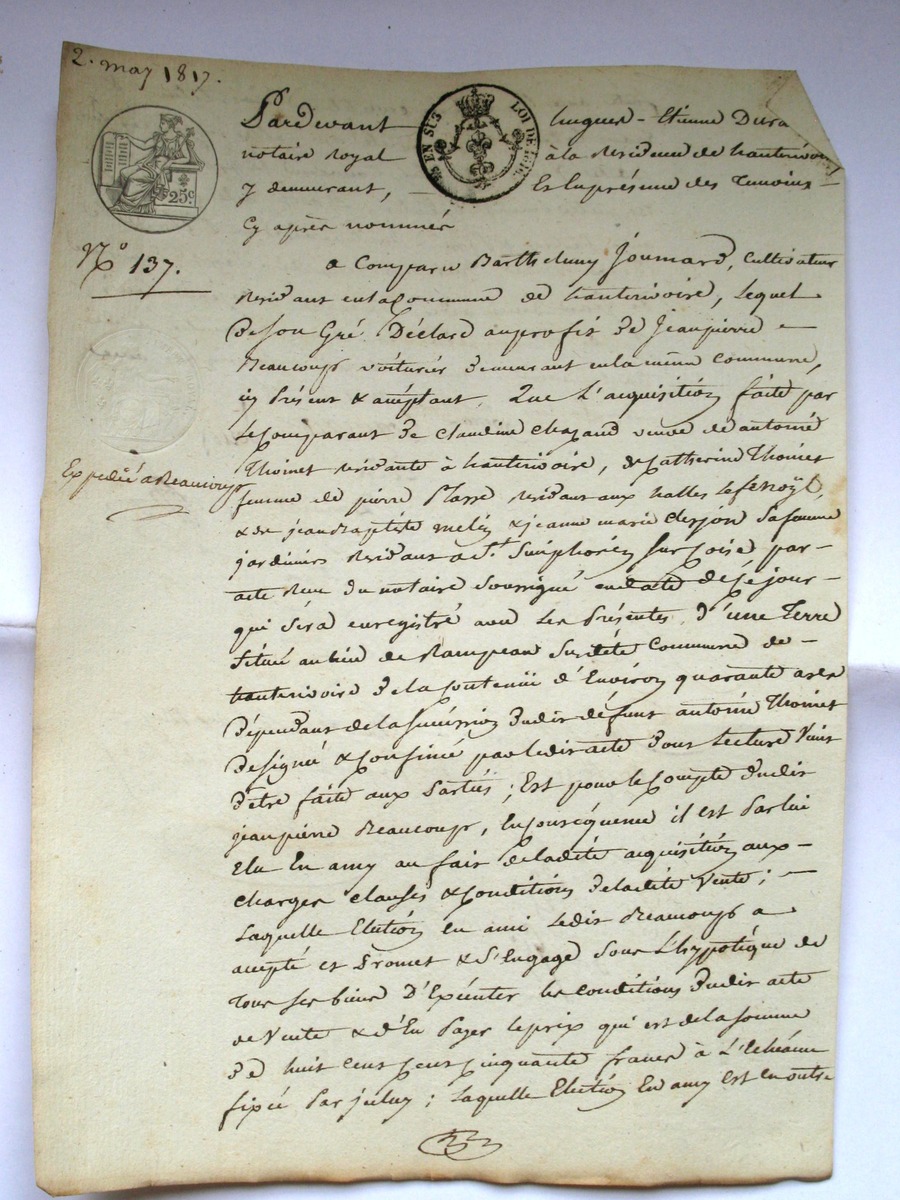 2. may 1817.
25c
EN SUS
LOI DE 1816.
Pardevant hugues - Etienne Dura
notaire royal à la residence de hauterivoire
y demeurant, Et en présence des Temoins
Cy après nommés
N° 137.
a Comparu Barthelemy Joumard, cultivateur
residant en la Commune de hauterivoire, lequel
de son Gré Déclare au profit de Jeanpierre
Beaucoup voiturier demeurant en la même commune,
icy Présent & acceptant, Que L'acquisition faite par
le comparant de claudine chazaud veuve de antoine
Expedié a Beaucoup
Thoinet residante à hauterivoire, de Catherine Thoinet
femme de pierre Plasse residant aux halles le fenoÿl,
& de jean baptiste & jeanne marie sa femme
jardiniers residant a St. Simphorien sur Coise par
acte Reçu du notaire soussigné en date de ce jour
qui sera enregistré avec les Présentes, d'une Terre
Située au lieu de Rampeau susdite Commune de
hauterivoire de la contenüe d'Environ quarante ares
Dépendant de la succession dudit défunt antoine Thoinet
Designé & Confiné par ledit acte dont Lecture Vient
d'être faite aux Parties ; Est pour le Compte dudit
jeanpierre Beaucoup, En conséquence il est Par lui
Elu En amy au fait de ladite acquisition aux
charges clauses & Conditions de ladite Vente ;
Laquelle Election en ami ledit Beaucoup a
accepté et Promet & s'Engage sous L'hypotéque de
Tous ses biens D'Exécuter les conditions dudit acte
de Vente & d'En Payer le prix qui est de la somme
de huit cent cinquante francs à L'Echéance
fixée Par jceluy ; Laquelle Election En amy est en outre